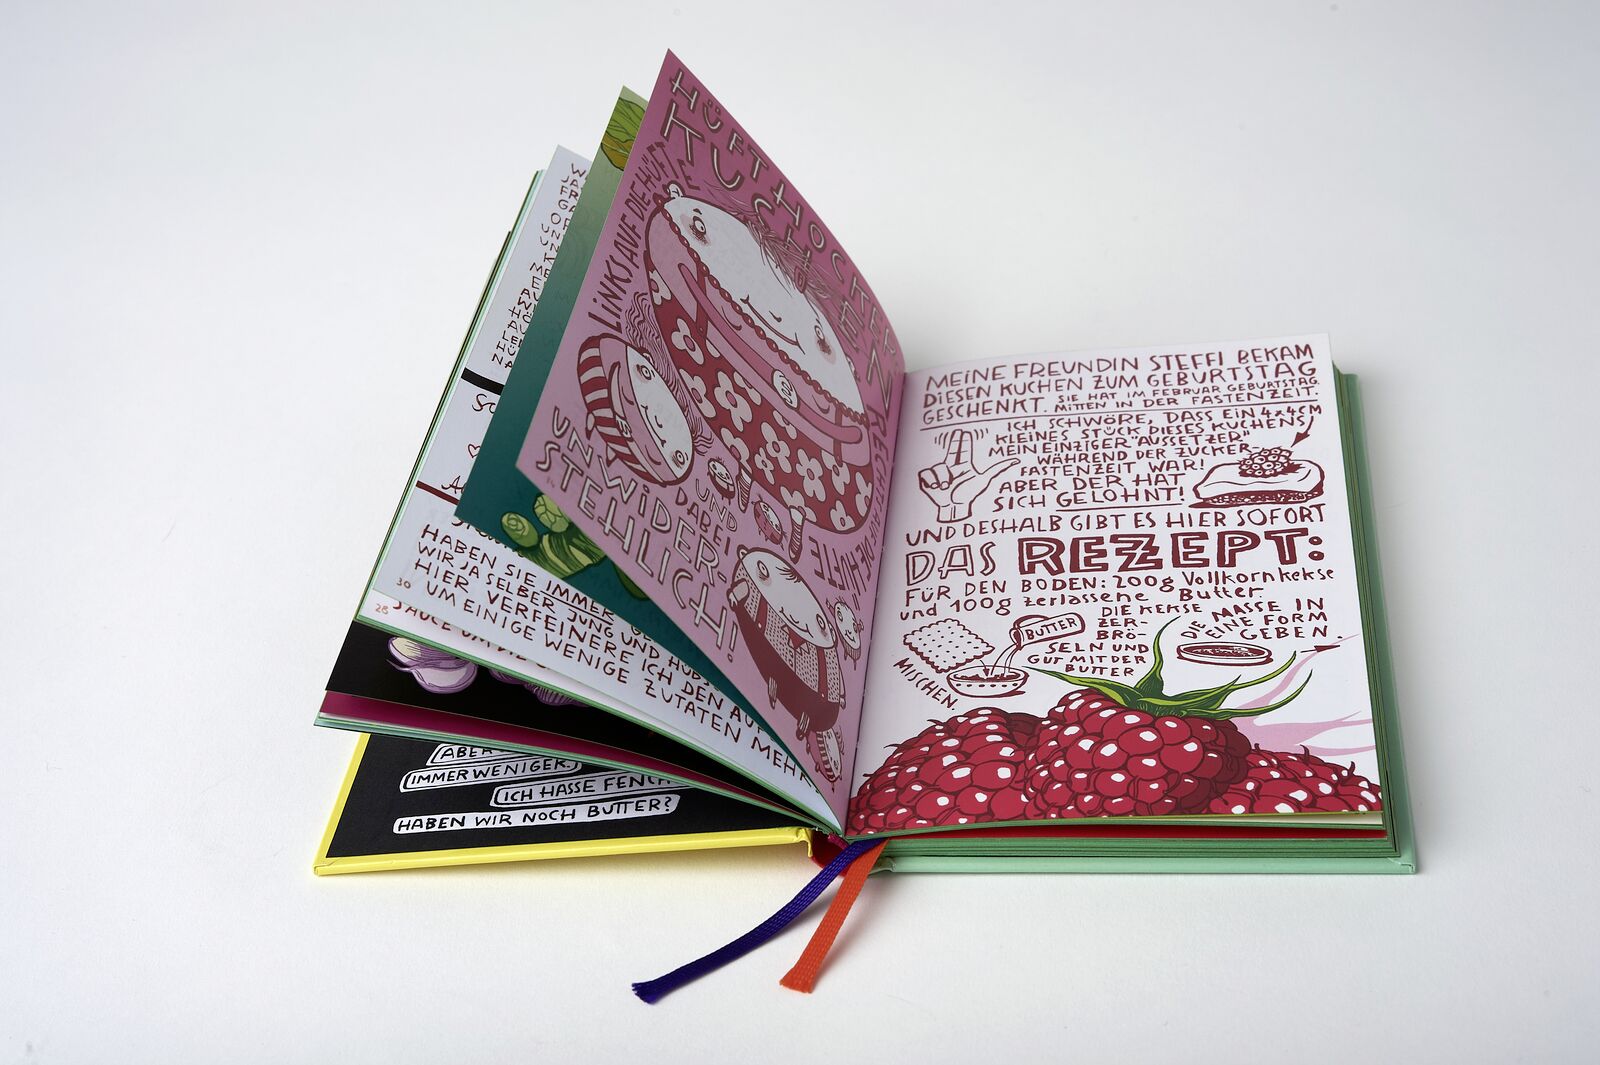 HÜFTHOCKER
KUCHEN
LINKS AUF DIE HÜFTE
RECHTS AUF DIE HÜFTE
UND
DABEI
UNWIDER-
STEHLICH!
MEINE FREUNDIN STEFFI BEKAM
DIESEN KUCHEN ZUM GEBURTSTAG
GESCHENKT. SIE HAT IM FEBRUAR GEBURTSTAG.
MITTEN IN DER FASTENZEIT.
ICH SCHWÖRE, DASS EIN 4x4CM
KLEINES STÜCK DIESES KUCHENS
MEIN EINZIGER "AUSSETZER"
WÄHREND DER ZUCKER-
FASTENZEIT WAR!
ABER DER HAT
SICH GELOHNT!
UND DESHALB GIBT ES HIER SOFORT
DAS REZEPT:
FÜR DEN BODEN: 200g Vollkornkekse
und 100g zerlassene Butter
DIE KEKSE
ZER-
BRÖ-
SELN UND
GUT MIT DER
BUTTER
MISCHEN.
BUTTER
DIE MASSE IN
EINE FORM
GEBEN.
HABEN SIE IMMER
WIR JA SELBER JUNG UND HÜBSC
HIER VERFEINERE ICH DEN AUF
UM EINIGE WENIGE ZUTATEN MEHR
30
28
SAUCE UM DIE
ABER
IMMER WENIGER.
ICH HASSE FENCH
HABEN WIR NOCH BUTTER?